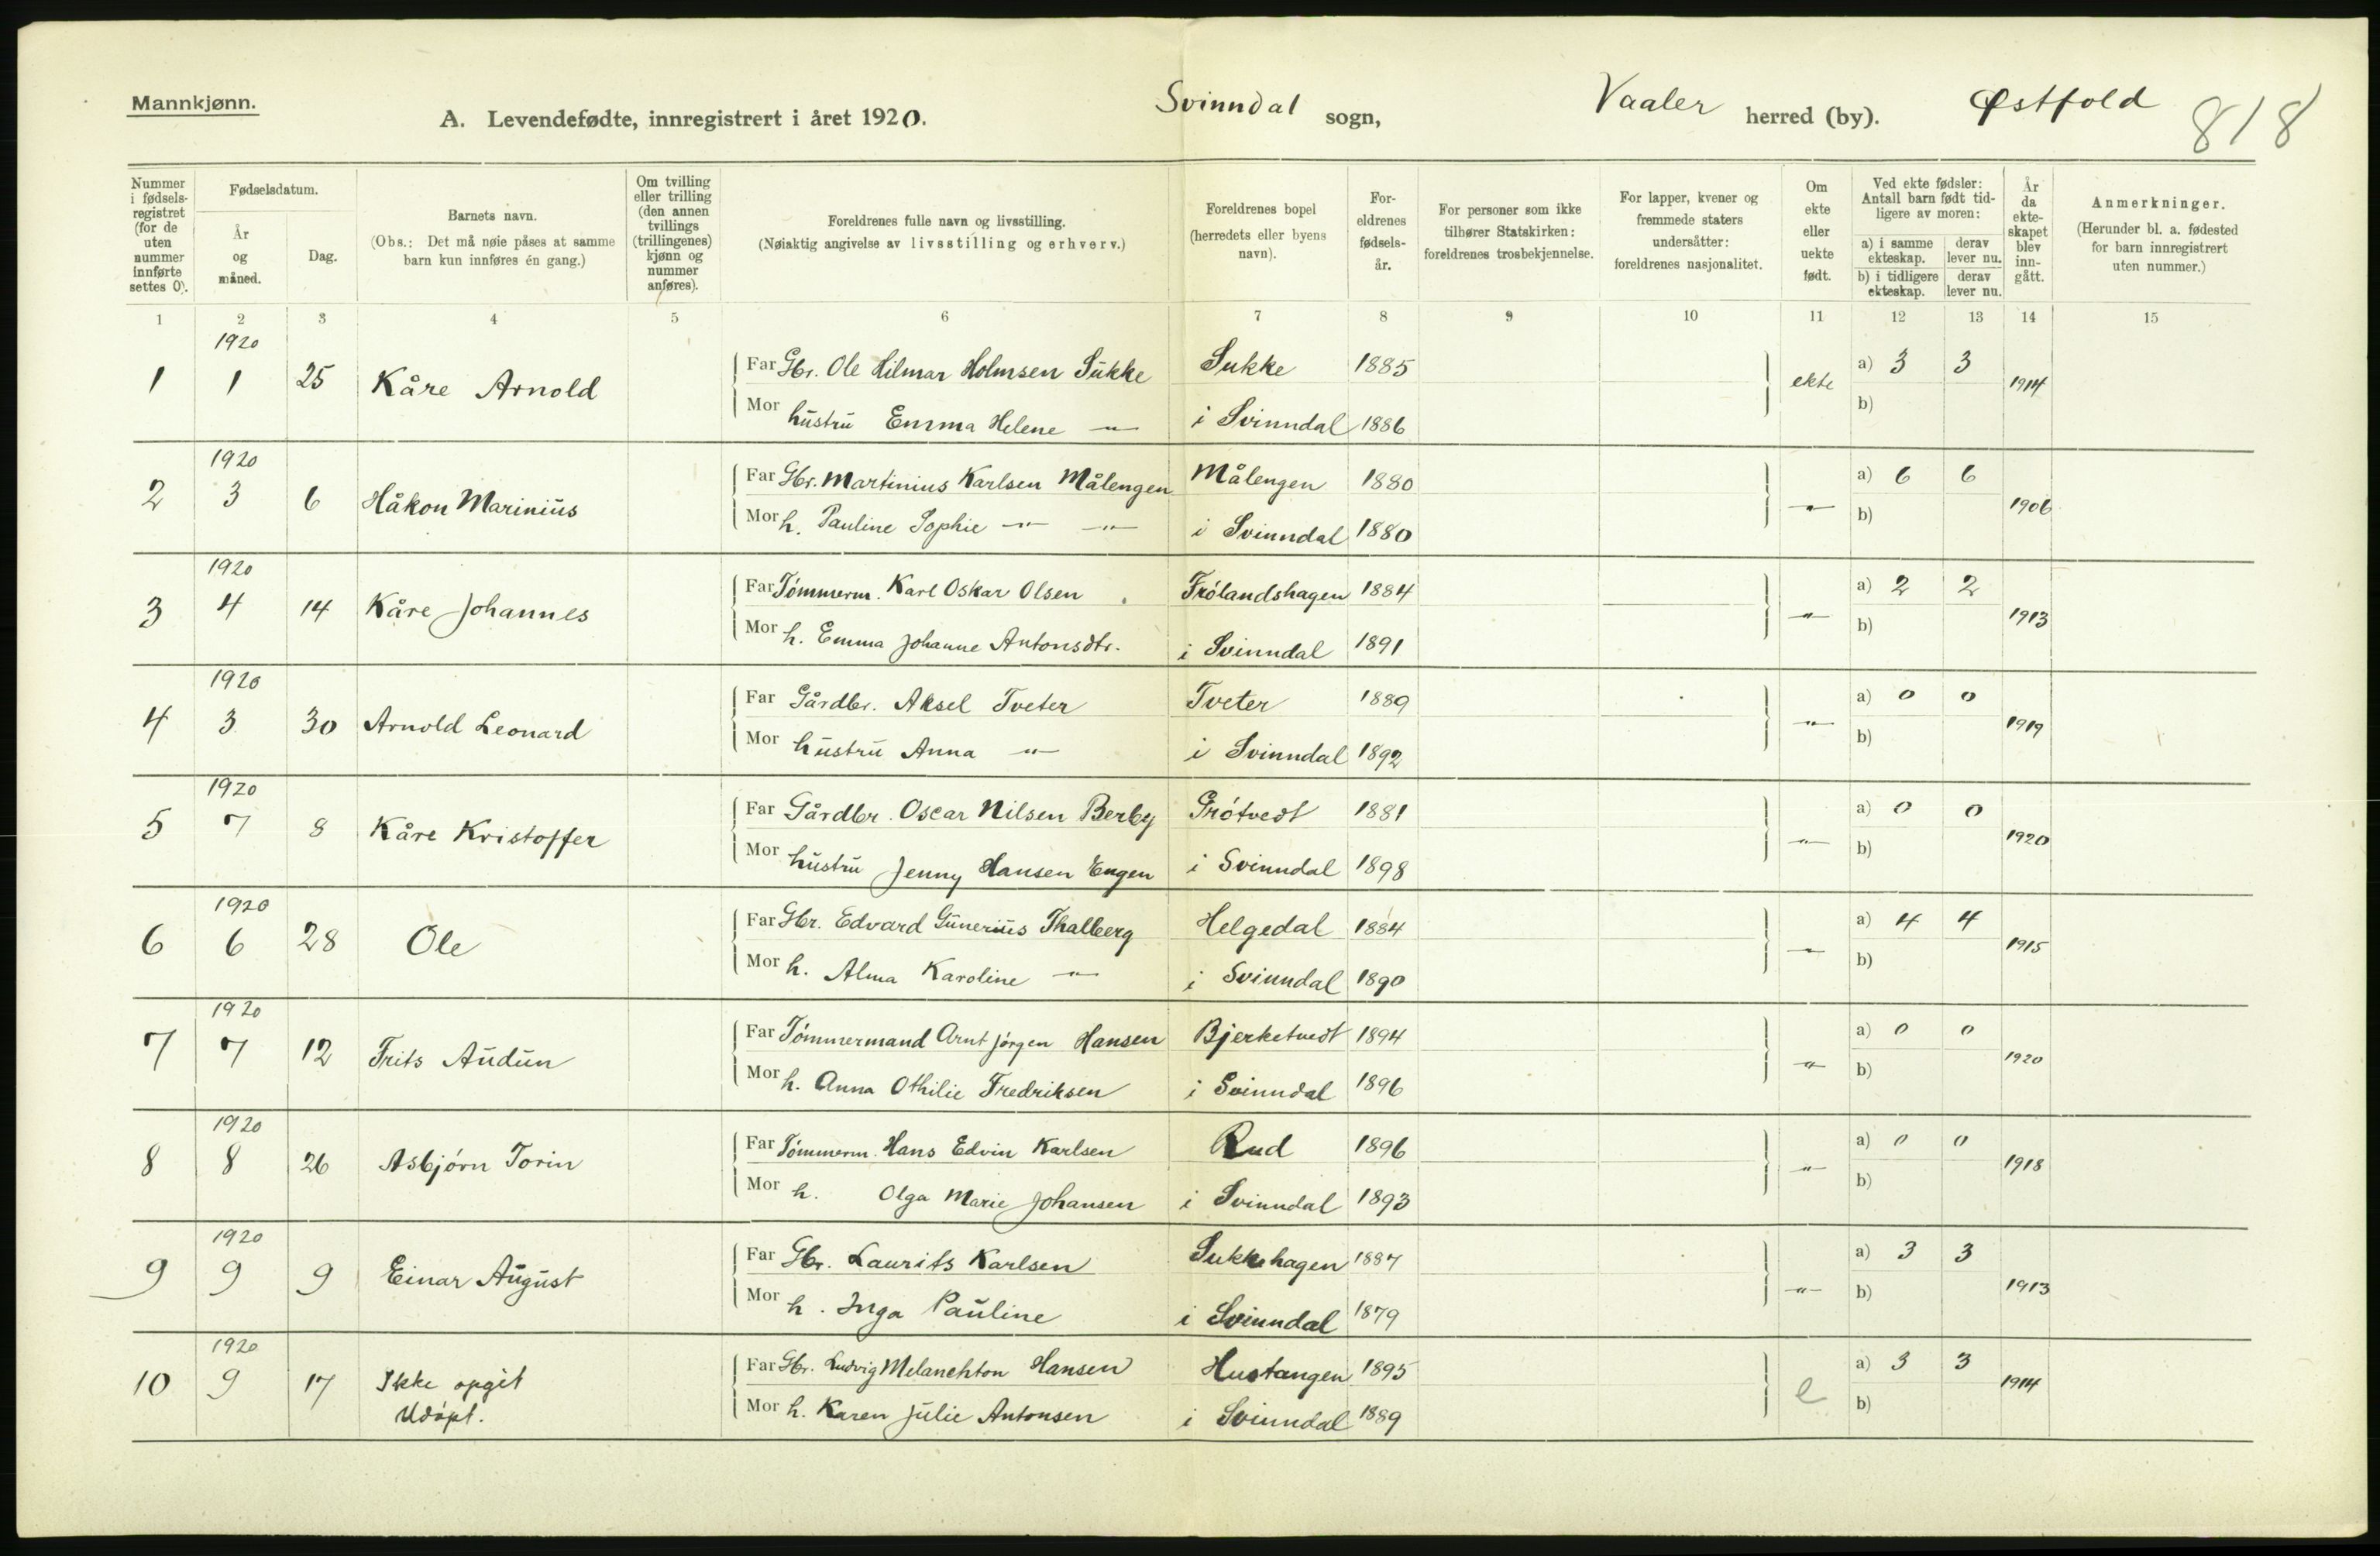 Mannkjønn.
A. Levendefødte, innregistrert i året 1920. Svinndal sogn, Vaaler herred (by). Østfold 818
Nummer i fødsels-registret (for de uten nummer innførte settes 0).
Fødselsdatum.
År og måned.
Dag.
Barnets navn.
(Obs.: Det må nøie påses at samme barn kun innføres én gang.)
Om tvilling eller trilling (den annen tvillings (trillingenes) kjønn og nummer anføres).
Foreldrenes fulle navn og livsstilling.
(Nøiaktig angivelse av livsstilling og erhverv.)
Foreldrenes bopel (herredets eller byens navn).
For-eldrenes fødsels-år.
For personer som ikke tilhører Statskirken: foreldrenes trosbekjennelse.
For lapper, kvener og fremmede staters undersåtter: foreldrenes nasjonalitet.
Om ekte eller uekte født.
Ved ekte fødsler: Antall barn født tid-ligere av moren:
a) i samme ekteskap. derav lever nu.
b) i tidligere ekteskap. derav lever nu.
År da ekte-skapet blev inn-gått.
Anmerkninger.
(Herunder bl. a. fødested for barn innregistrert uten nummer.)
1 2 3 4 5 6 7 8 9 10 11 12 13 14 15
1920
1 1 25 Kåre Arnold Far Gbr. Ole Hilmar Holmsen Sukke Sukke 1885 ekte a) 3 3 1914
Mor hustru Emma Helene -"- i Svinndal 1886 b)
1920
2 3 6 Håkon Marinius Far Gbr. Martinius Karlsen Målengen Målengen 1880 -"- a) 6 6 1906
Mor h. Pauline Sophie -"- -"- i Svinndal 1880 b)
1920
3 4 14 Kåre Johannes Far Tömmerm. Karl Oskar Olsen Frölandshagen 1884 -"- a) 2 2 1913
Mor h. Emma Johanne Antonsdtr. i Svinndal 1891 b)
1920
4 3 30 Arnold Leonard Far Gårdbr. Aksel Tveter Tveter 1889 -"- a) 0 0 1919
Mor hustru Anna -"- i Svinndal 1892 b)
1920
5 7 8 Kåre Kristoffer Far Gårdbr. Oscar Nilsen Berby Grótvedt 1881 -"- a) 0 0 1920
Mor hustru Jenny Hansen Engen i Svinndal 1898 b)
1920
6 6 28 Ole Far Gbr. Edvard Gunerius Thalberg Helgedal 1884 -"- a) 4 4 1915
Mor h. Alma Karoline -"- i Svinndal 1890 b)
1920
7 7 12 Frits Audun Far Tömmermand Arnt Jörgen Hansen Bjerketvedt 1894 -"- a) 0 0 1920
Mor h. Anna Othilie Fredriksen i Svinndal 1896 b)
1920
8 8 26 Asbjórn Torin Far Tömmerm. Hans Edvin Karlsen Rud 1896 -"- a) 0 0 1918
Mor h. Olga Marie Johansen i Svinndal 1893 b)
1920
9 9 9 Einar August Far Gbr. Laurits Karlsen Sukkehagen 1887 -"- a) 3 3 1913
Mor h. Inga Pauline i Svinndal 1879 b)
1920
10 9 17 Ikke opgit Far Gbr. Ludvig Melanchton Hansen Hustangen 1895 e a) 3 3 1914
Udópt. Mor h. Karen Julie Antonsen i Svinndal 1889 b)